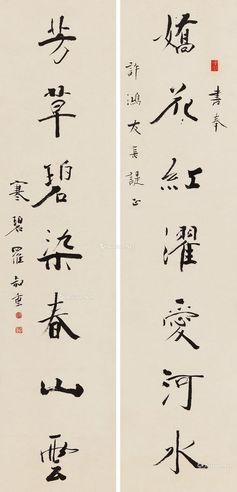 書奉
嬌花紅濯愛河水
許鴻友長諟正
芳草碧染春山雲
寒碧羅叔重